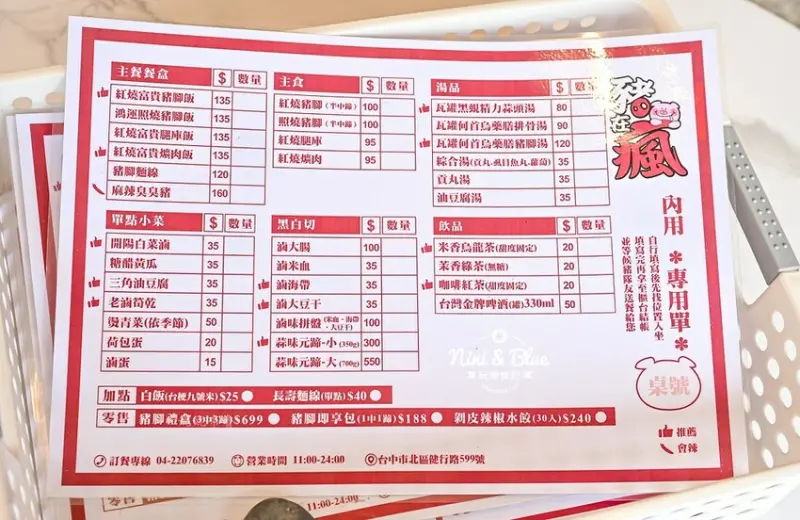 主餐餐盒 $ 數量
紅燒富貴豬腳飯 135
鴻運照燒豬腳飯 135
紅燒富貴腿庫飯 135
紅燒富貴爌肉飯 135
豬腳麵線 120
麻辣臭臭豬 160
主食 $ 數量
紅燒豬腳(半中蹄) 100
照燒豬腳(半中蹄) 100
紅燒腿庫 95
紅燒爌肉 95
湯品 $ 數量
瓦罐黑蜆精力蒜頭湯 80
瓦罐何首烏藥膳排骨湯 90
瓦罐何首烏藥膳豬腳湯 120
綜合湯(貢丸.虱目魚丸.蘿蔔) 35
貢丸湯 35
油豆腐湯 35
單點小菜 $ 數量
開陽白菜滷 35
糖醋黃瓜 35
三角油豆腐 35
老滷筍乾 35
燙青菜(依季節) 50
荷包蛋 20
滷蛋 15
黑白切 $ 數量
滷大腸 100
滷米血 35
滷海帶 35
滷大豆干 35
滷味拼盤(米血、海帶、大豆干) 100
蒜味元蹄-小(350g) 300
蒜味元蹄-大(700g) 550
飲品 $ 數量
米香烏龍茶(甜度固定) 20
茉香綠茶(無糖) 20
咖啡紅茶(甜度固定) 20
台灣金牌啤酒(罐)330ml 50
加點 白飯(台梗九號米)$25 長壽麵線(單點)$40
零售 豬腳禮盒(3中3蹄)$699 豬腳即享包(1中1蹄)$188 剝皮辣椒水餃(30入)$240
訂餐專線 04-22076839 營業時間 11:00-24:00 台中市北區健行路599號
豬在瘋
內用＊專用單＊
自行填寫後先找位置入坐
填寫完再拿至櫃台結帳
並等候豬隊友送餐給您
桌號
推薦
會辣
Nini & Blue
零售
11:00-24:00